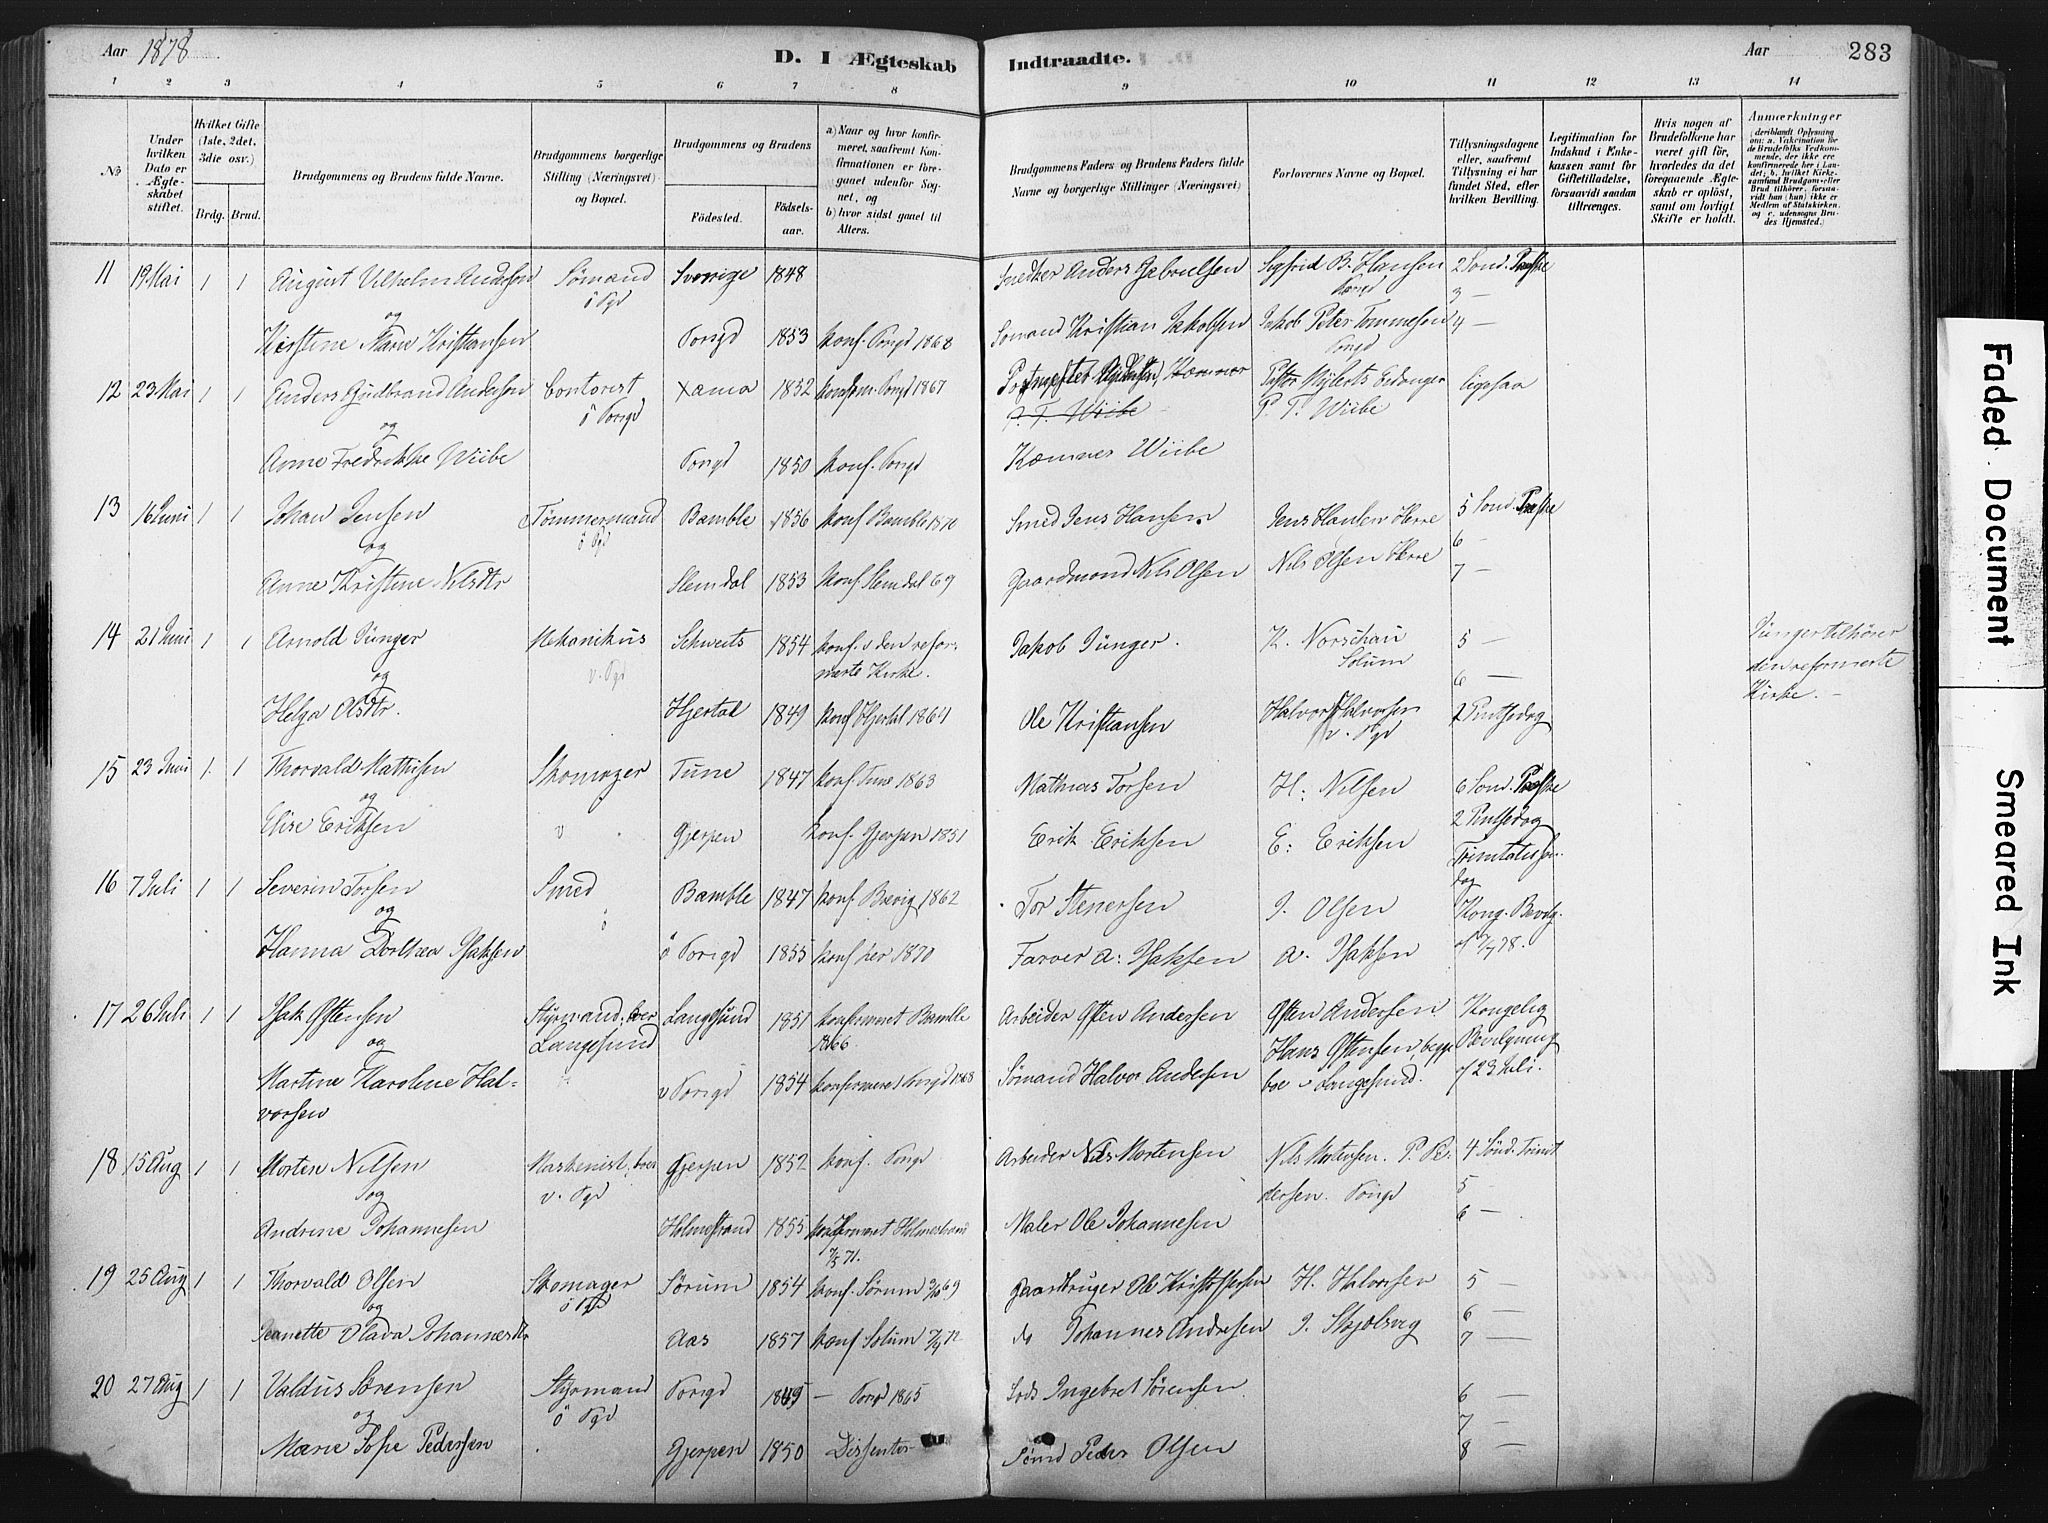 Aar 1878 D. I Ægteskab Indtraadte. Aar 283
1 2 3 4 5 6 7 8 9 10 11 12 13 14
No
Under hvilken Dato er Ægteskabet stiftet.
Hvilket Gifte (1ste, 2det, 3die osv.)
Brdg. Brud.
Brudgommens og Brudens fulde Navne.
Brudgommens borgerlige Stilling (Næringsvei) og Bopæl.
Brudgommens og Brudens
Födested. Födselsaar.
a) Naar og hvor konfirmeret, saafremt Konfirmationen er foregaaet udenfor Sognet, og
b) hvor sidst gaaet til Alters.
Brudgommens Faders og Brudens Faders fulde Navne og borgerlige Stillinger (Næringsvei)
Forlovernes Navne og Bopæl.
Tillysningsdagene eller, saafremt Tillysning ei har fundet Sted, efter hvilken Bevilling.
Legitimation for Indskud i Enkekassen samt for Giftetilladelse, forsaavidt saadan tiltrænges.
Hvis nogen af Brudefolkene har været gift før, hvorledes da det foregaaende Ægteskab er oplöst, samt om lovligt Skifte er holdt.
Anmærkninger
(deriblandt Oplysning om: a. Vakcination for de Brudefolks Vedkommende, der ikke ere konfirmerede her i Landet; b. hvilket Kirkesamfund Brudgom eller Brud tilhører, forsaavidt han (hun) ikke er Medlem af Statskirken, og c. udensogns Brudes Hjemsted.)
11 19 Mai 1 1 August Vilhelm Andersen Sømand Sverrige 1848 Snedker Anders Gabrielsen Sigfrid B. Hansen 2 Sönd. Paaske
og ö Pgd Porsgd 3 —
Kirstine Marie Kristiansen Porsgd 1853 konf. Porsgd 1868 Sömand Kristian Jakobsen Jakob Peter Tommesen 4 —
Porsgd
12 23 Mai 1 1 Anders Gudbrand Andersen Contorist 1852 konfirm. Porsgd 1867 Postmester Kæmner Eidanger ligesaa
og ö Porsgd P. T. Wiibe P. T. Wiibe
Anne Fredrikke Wiibe Porsgd 1850 konf. Porsgd Kæmner Wiibe
13 16 Juni 1 1 Johan Jensen Tømmermand Bamble 1856 konf Bamble 1870 Smed Jens Hansen Jens Hansen Herre 5 Sönd. Paaske
og ö Pgd 6 —
Anne Kristine Nilsdtr Slemdal 1853 konf Slemdal 69 Gaardmand Nils Olsen Nils Olsen Herre 7 —
14 21 Juni 1 1 Arnold Jünger Mekanikus Schweits 1854 konf. i den reformerte Kirke. Jakob Jünger. K. Norschau 5 — Jünger tilhører
og v. Pgd Solum 6 — den reformerte
Helga Olsdtr. Hjertdal 1849 konf Hjertdal 1864 Ole Kristiansen Halvor Halvorsen 2 Pintsedag Kirke. —
v. Pgd
15 23 Juni 1 1 Thorvald Mathisen Skomager Tune 1847 konf Tune 1863 Mathias Torsen H. Nilsen 6 Sönd. Paaske
og 2 Pintsedag
Elise Eriksen v Gjerpen konf. Gjerpen 1851 Erik Eriksen E. Eriksen Trinitatissöndag
16 7 Juli 1 1 Severin Torsen Smed Bamble 1847 konf Brevig 1862 Tor Stenersen J. Olsen Kong. Bevilg.
og ö af 2/7 78.
Hanna Dorthea Isaksen ö Porsgd 1855 konf her 1870 Farver A. Isaksen A. Isaksen
17 26 Juli 1 1 Isak Oftensen Styrmand, bor Langesund 1851 konfirmeret Bamble Arbeider Osten Andersen Osten Andersen Kongelig
og Langesund 1866. Hans Ostensen, begge Bevilgning
Martine Karoline Halvorsen v Porsgd 1854 konfirmeret Porsgd 1868 Sømand Halvor Andersen bor i Langesund. af 23 Juli.
18 15 Aug 1 1 Morten Nilsen Maskinist, bor Gjerpen 1852 konf. Porsgd Arbeider Nils Mortensen Nils Mortensen. P. Pedersen. Porsgd 4 Sönd. Trinit
og v. Pgd 5 —
Andrine Johannesen Holmestrand 1855 konfirmeret Holmestrand 71. Maler Ole Johannesen 6 —
19 25 Aug 1 1 Thorvald Olsen Skomager Sørum 1854 konf. Sørum 69 Gaardbruger Ole Kristoffersen H. Halvorsen 5 —
og ö Pgd 6 —
Jeanette Olava Johannesdtr Aas 1857 konf Solum 72 do Johannes Andresen J. Skjelsvig 7 —
20 27 Aug 1 1 Valdus Sørensen Styrmand Porsgd 1849 — Porsgd 1865 Lods Ingebret Sørensen 6 —
og ö Pgd 7 —
Maren Sofie Pedersen Gjerpen 1850 Dissenter Sømd Peder Olsen 8 —
Faded Document Smeared Ink